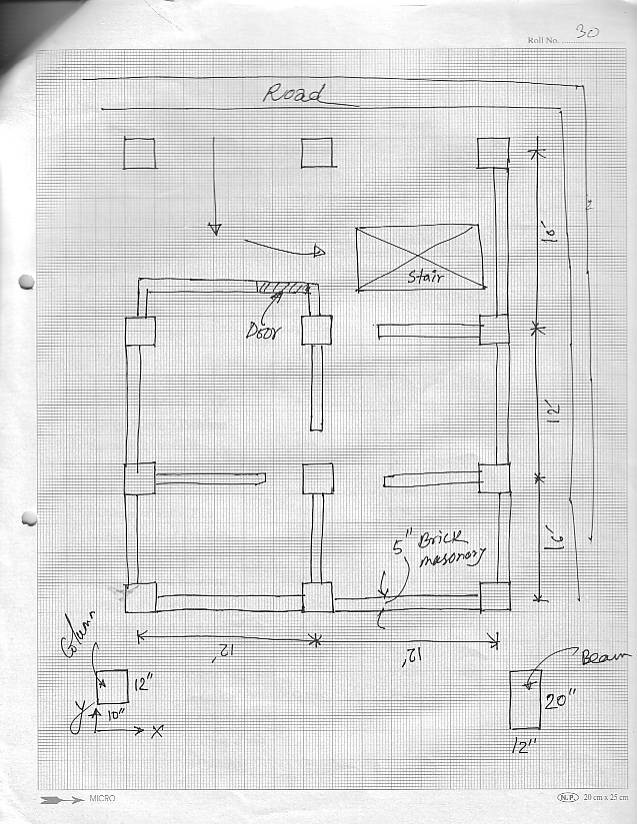 Roll No. 30
Road
Stair
Door
12'
5" Brick
masonary
12'
12'
Column
12"
10"
Y
X
Beam
20"
12"
MICRO
N.P. 20 cm x 25 cm